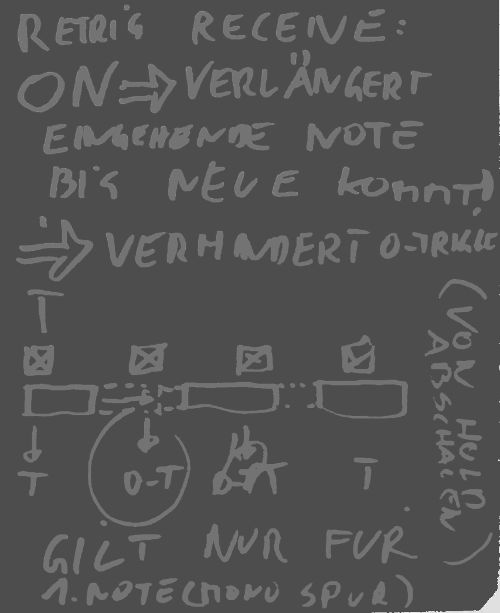 RETRIG RECEIVE:
ON ⇒ VERLÄNGERT
EINGEHENDE NOTE
BIS NEUE kommt!
⇒ VERHINDERT 0-TRIGG
T
T 0-T T
(VON HOLD
ABSCHALEN)
GILT NUR FÜR
1. NOTE (MONO SPUR)